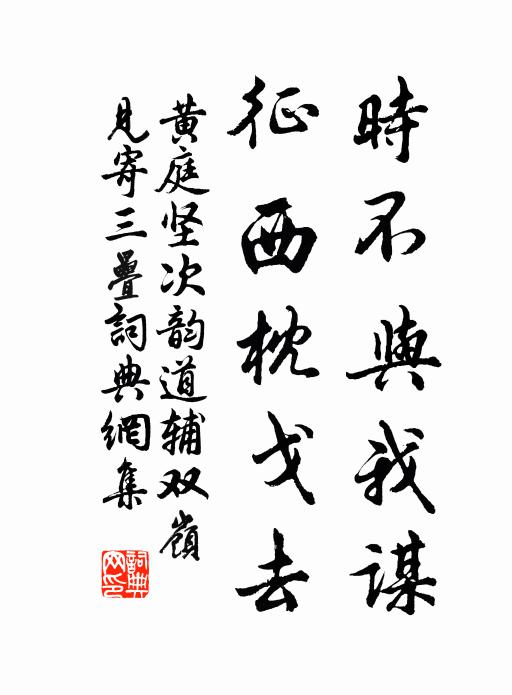 時不與我謀
征西枕戈去
黄庭坚次韵道辅双嶺
見寄三疊詞典網集
詞典網印